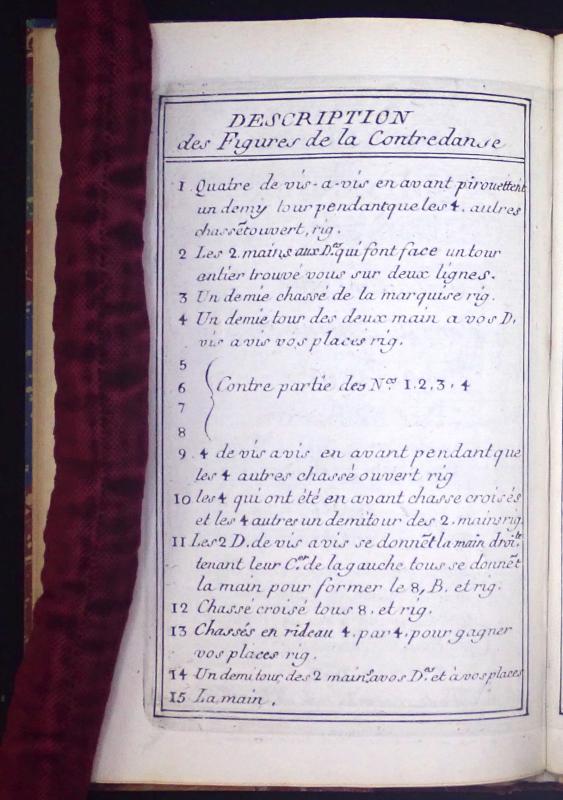 DESCRIPTION
des Figures de la Contredanse
1 Quatre de vis-a-vis en avant pirouettent
un demy tour pendant que les 4. autres
chassẽt ouvert, rig.
2 Les 2 mains aux D.es qui font face un tour
entier trouvé vous sur deux lignes.
3 Un demie chassé de la marquise rig.
4 Un demie tour des deux main a vos D.
vis a vis vos places rig.
5
6 Contre partie des N.os 1.2,3,4
7
8
9 . 4 de vis a vis en avant pendant que
les 4 autres chassé ouvert rig
10 les 4 qui ont été en avant chasse croisés
et les 4 autres un demi tour des 2. mains rig.
11 Les 2 D. de vis a vis se donnẽt la main droi.te
tenant leur C.er de la gauche tous se donnẽt
la main pour former le 8, B. et rig.
12 Chassé croisé tous 8. et rig.
13 Chassés en rideau 4. par 4. pour gagner
vos places rig.
14 Un demi tour des 2 mains a vos D.es et à vos places
15 La main.